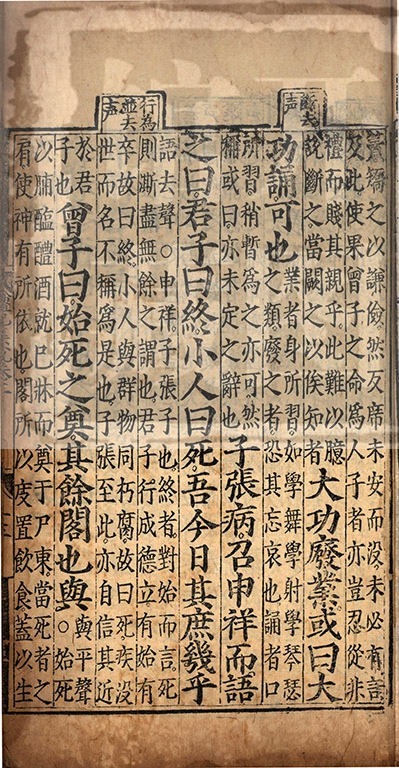 斷去
声
行為
並去
声
簀矯之以謙儉然反席未安而沒未必有言
及此使果曾子之命爲人子者亦豈忍從非
禮而賤其親乎此難以臆
說斷之當闕之以俟知者
大功廢業或曰大
功誦可也
業者身所習如學舞學射學琴瑟
之類廢之者恐其忘哀也誦者口
所習稍暫爲之亦可然
稱或曰亦未定之辭也
子張病召申祥而語
之曰君子曰終小人曰死吾今日其庶幾乎
語去聲○申祥子張子也終者對始而言死
則澌盡無餘之謂也君子行成德立有始有
卒故曰終小人與群物同朽腐故曰死疾沒
世而名不稱爲是也子張至此亦自信其近
於君
子也
曾子曰始死之奠其餘閣也與
與平聲
○始死
以脯醢醴酒就尸牀而奠于尸東當死者之
肩使神有所依也閣所以庋置飲食蓋以生